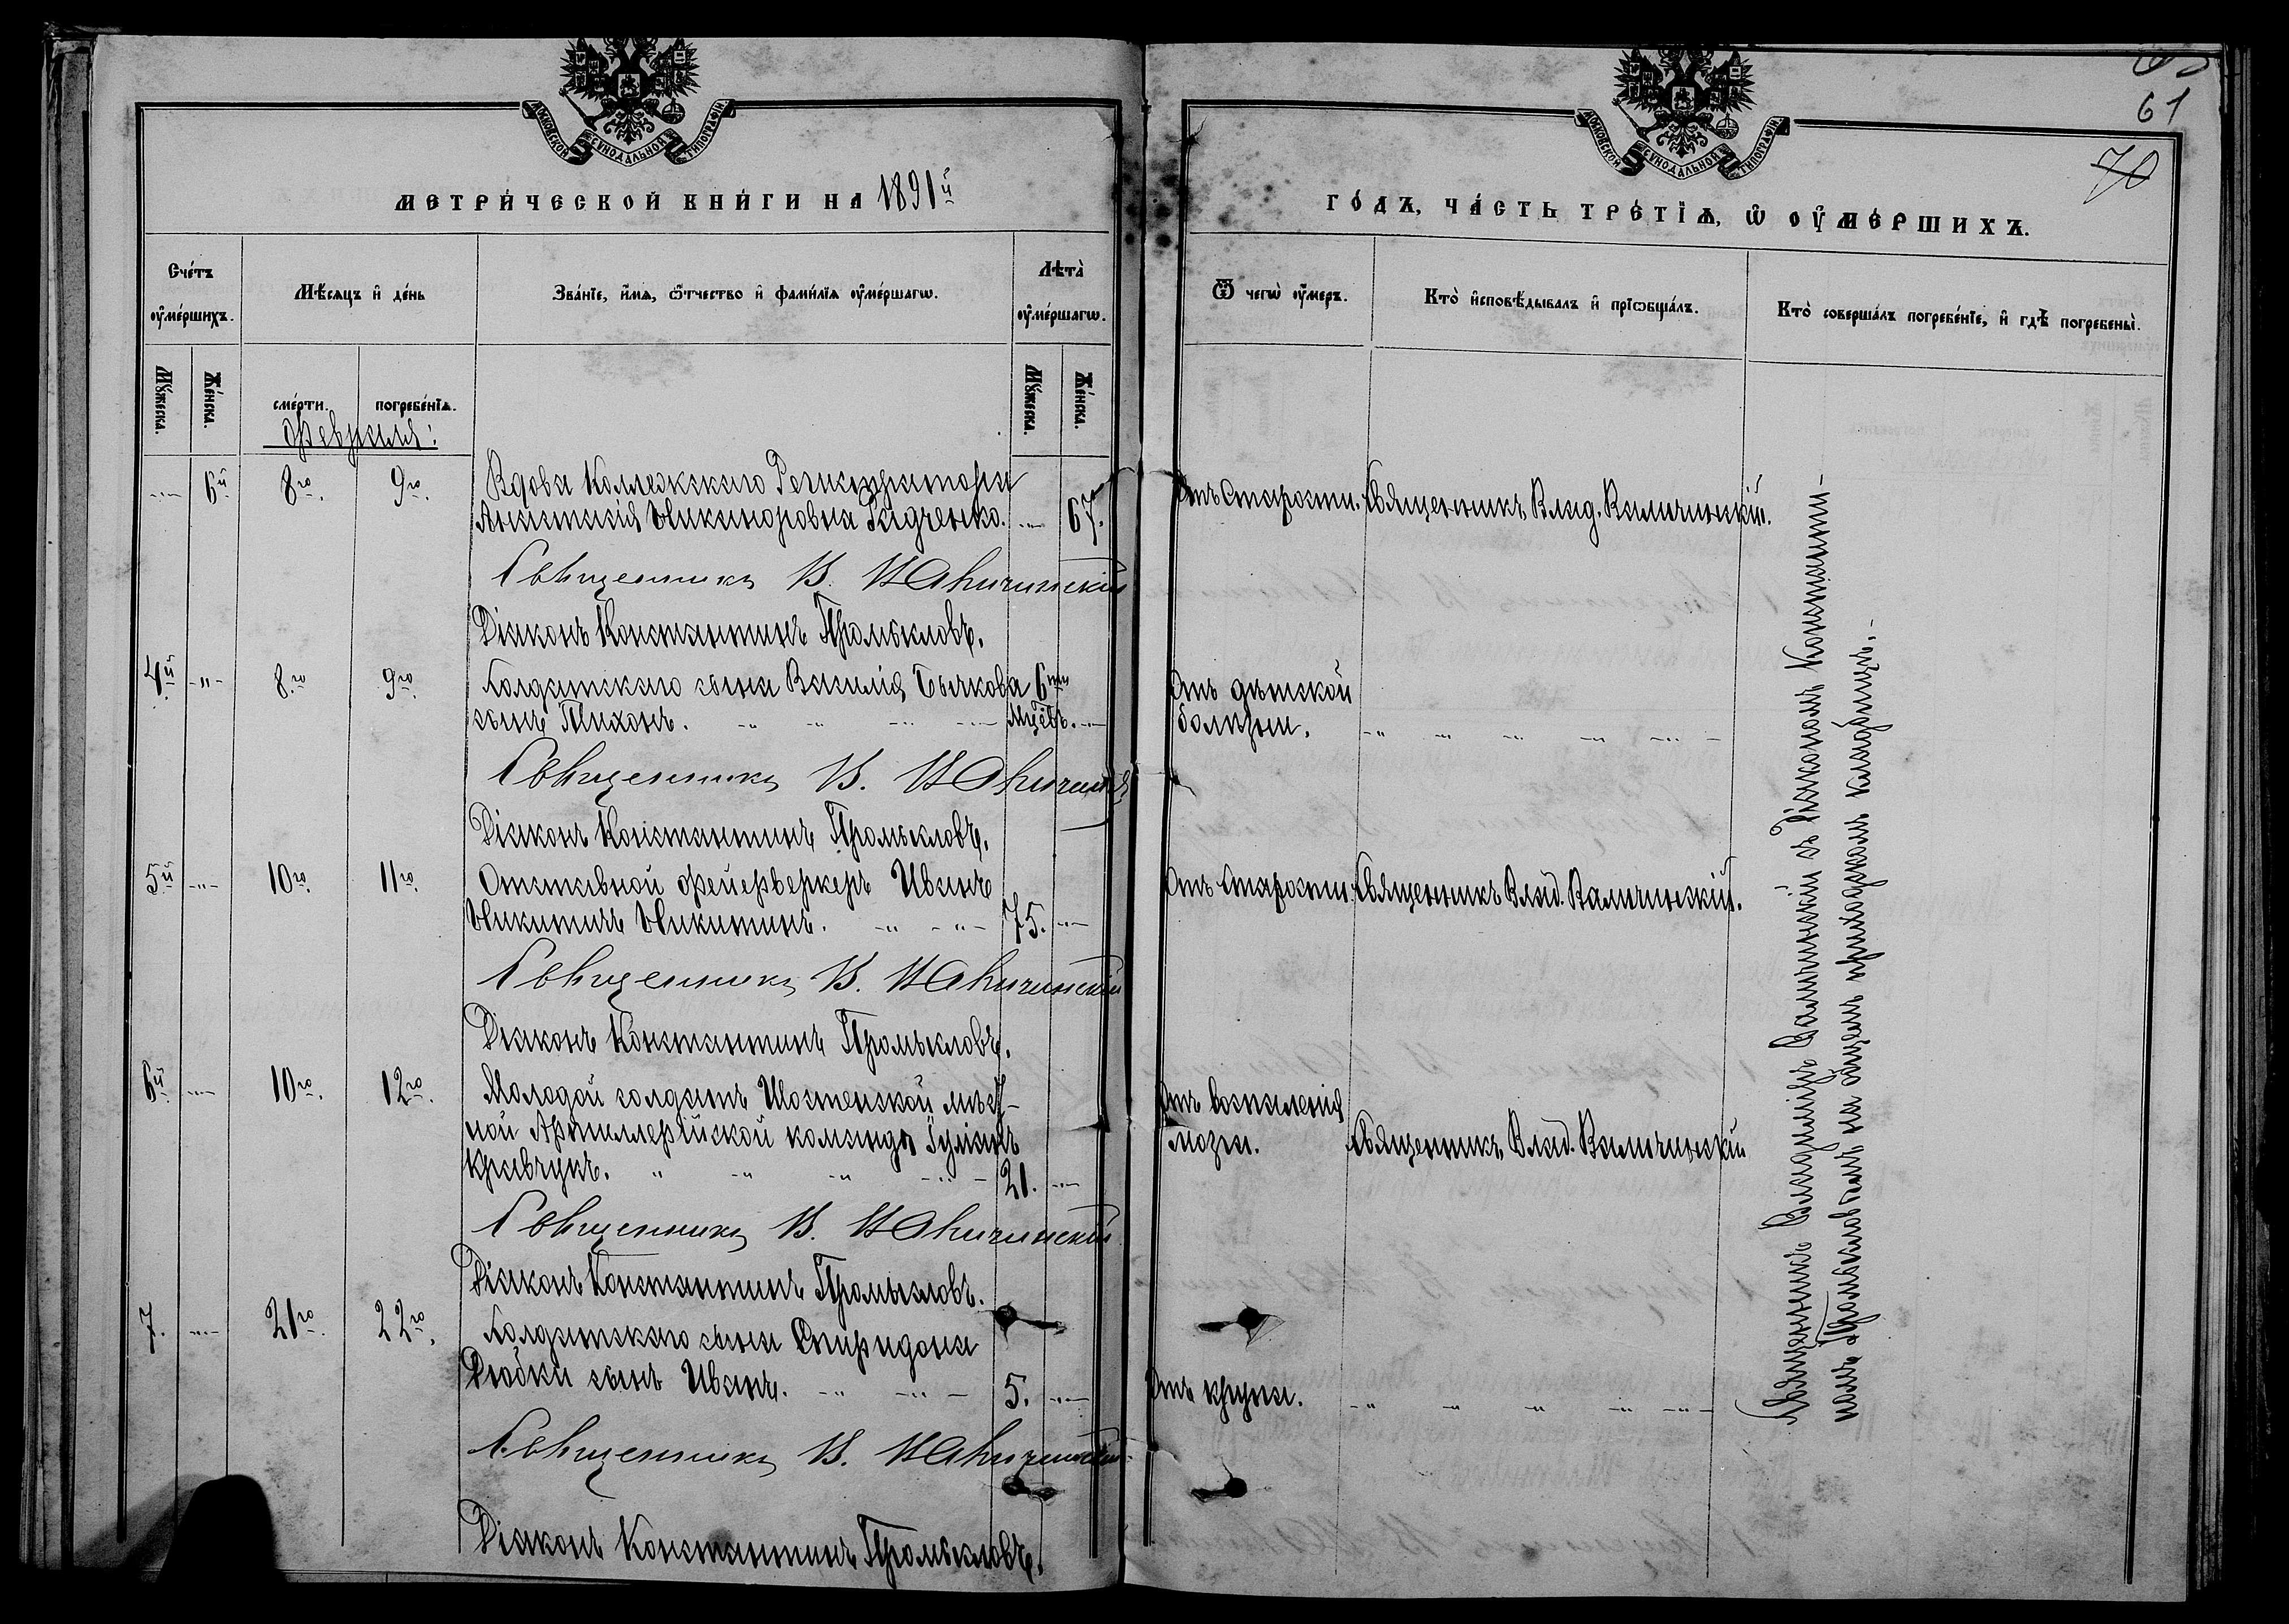 МОСКОВСКОЙ СѴНОДАЛЬНОЙ ТИПОГРАФІИ
МЕТРИЧЕСКОЙ КНИГИ НА 1891й
Счетъ умершихъ.
Мѣсяцъ и день
Званіе, имя, отчество и фамилія умершагѡ.
Лѣта умершагѡ.
Мужеска.
Женска.
смерти.
погребенія.
Мужеска.
Женска.
Февраля:
6й 8го. 9го. Вдова Коллежскаго Регистратора
Анастасія Никаноровна Гидченко. 67.
Священникъ В. Валичинскій
Діаконъ Константинъ Промысловъ.
4й 8го 9го. Солдатскаго сына Василія Бычкова 6ти
сынъ Тихонъ. Мцевъ.
Священникъ В. Валичинскій
Діаконъ Константинъ Промысловъ.
5й 10го. 11го. Отставной фейерверкеръ Иванъ
Никитичъ Никитинъ. 75.
Священникъ В. Валичинскій
Діаконъ Константинъ Промысловъ.
6й 10го. 12го. Молодой солдатъ Шостенской мѣст-
ной Артиллерійской команды Гуліанъ
Кравчукъ. 21.
Священникъ В. Валичинскій
Діаконъ Константинъ Промысловъ.
7. 21го. 22го. Солдатскаго сына Спиридона
Дюбки сынъ Иванъ. 5.
Священникъ В. Валичинскій
Діаконъ Константинъ Промысловъ.
61
70
МОСКОВСКОЙ СѴНОДАЛЬНОЙ ТИПОГРАФІИ
ГОДЪ, ЧАСТЬ ТРЕТІЯ, Ѡ УМЕРШИХЪ.
Ѿ чегѡ умеръ.
Кто исповѣдывалъ и пріобщалъ.
Кто совершалъ погребеніе, и гдѣ погребены.
Отъ старости. Священникъ Влад. Валичинскій.
Отъ дѣтской
болѣзни.
Отъ старости. Священникъ Влад. Валичинскій.
Отъ воспаленія
мозга. Священникъ Влад. Валичинскій
Отъ крупа.
Священникъ Владиміръ Валичинскій съ Діакономъ Константи-
номъ Промысловымъ на общемъ приходскомъ кладбищѣ.